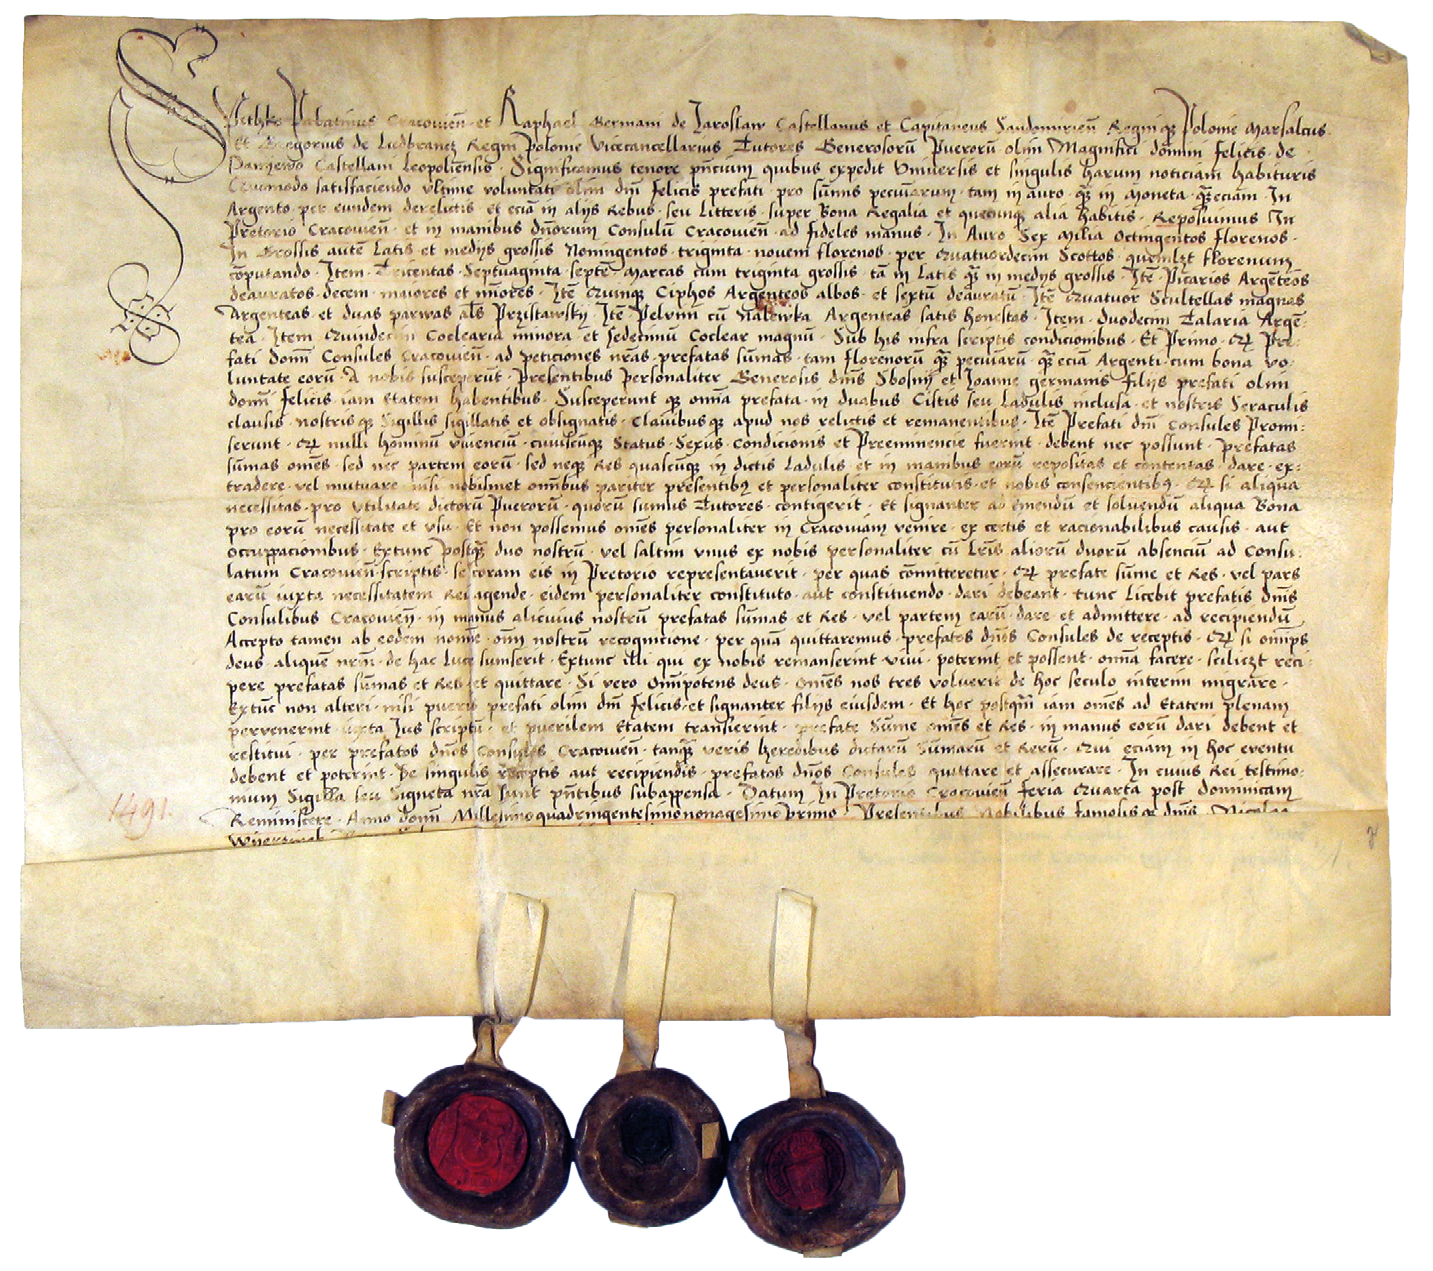 Palatinus Cracovieñ et Raphael Germani de Jaroslaw Castellanus et Capitaneus Sandomirieñ Regniq̃ Polonie Marsalcus ·
Et Gregorius de Ludbrancz Regni Polonie Vicecancellarius Tutores Generosorũ Puerorũ olim Magnifici domini felicis · de ·
Castellani Leopoliensis · Significamus tenore pñcium quibus expedit Universis et singulis harum noticiam habituris
satisfaciendo ultime voluntati olim dñi felicis prefati · pro sũmis pecuniarum · tam in auro · q̃ in Moneta · q̃ eciam · In
Argento per eundem derelictis et eciã in alijs Rebus · seu Litteris · super Bona Regalia et quecunq̃ alia habitis · Reposuimus In
Pretorio Cracovieñ · et in manibus dñorum Consulũ Cracovieñ · ad fideles manus · In Auro Sex Milia Octingentos florenos ·
In Grossis autẽ Latis et medijs grossis Nonningentos · triginta · novem florenos · per Quatuordecim Scottos · quemlzt florenum
cõputando · Item · Trecentas · Septuaginta · septẽ Marcas cum triginta grossis tã in Latis q̃ in medijs grossis · Itẽ · Picarios Argẽteos
deauratos · decem · maiores et miñores · Itẽ Quinque Ciphos Argenteos albos · et sextũ deauratũ · Itẽ Quatuor Scultellas magnas
Argenteas · et duas parwas als Przistawky · Itẽ Pelvim cũ Nalewka Argenteas satis honestas · Item · Duodecim Talaria Argẽ-
tea · Item Quindecim Coclearia minora et sedecimũ Coclear magnũ · Sub his infra scriptis condicionibus · Et Primo · Qz Pre-
fati Domini Consules Cracovieñ · ad peticiones nr̃as · prefatas sũmas · tam florenorũ q̃ pecuniarũ q̃ eciam Argenti · cum bona vo-
luntate eorũ · A nobis susceperũt · Presentibus Personaliter Generosis dñis Sbosnij et Joanne germanis filijs prefati olim
domini felicis iam Etatem habentibus · Susceperunt q̃ omnia prefata · in duabus Cistis seu Ladulis inclusa · et nostris Seraculis
clausis · nostrisq̃ Sigillis sigillatis et obsignatis · Clavibusq̃ apud nos relictis et remanentibus · Itẽ Prefati dñi Consules Promi-
serunt · Qz nulli hominũ viuenciũ · cuiuscũq̃ Status · Sexus · condicionis et Preeminencie fuerint · debent nec possunt · prefatas
sũmas omẽs · sed nec partem eorũ · sed neq̃ Res quascũq̃ in dictis Ladulis et in manibus eorũ repositas et contentas · dare · ex-
tradere · vel mutuare · nisi nobismet omñbus pariter presentibus et personaliter constitutis · et nobis consencientibus · Qz si aliqua
necessitas · pro Utilitate dictorũ Puerorũ · quorũ sumus Tutores · contigerit · Et signanter ad emendũ et solvendũ aliqua Bona
pro eorũ necessitate et usu · Et non possemus omẽs personaliter in Cracoviam venire · ex certis et racionabilibus causis · aut
occuppacionibus · Extunc postq̃ duo nostrũ · vel saltim vnus ex nobis personaliter cũ Lr̃is aliorũ duorũ absenciũ ad Consu-
latum Cracovieñ scriptis · se coram eis in Pretorio representaverit · per quas cõmitteretur · Qz prefate sũme et Res · vel pars
earũ iuxta necessitatem Rei agende · eidem personaliter constituto · aut constituendo · dari debeant · tunc Licebit prefatis dñis
Consulibus Cracovieñ · in manus alicuius nostrũ prefatas sũmas et Res · vel partem earũ · dare et admittere · ad recipiendũ
Accepto tamen ab eodem nomie · omi nostrũ recognicione · per quã quittaremus · prefatos dños Consules de receptis · Qz si omips
deus · aliquẽ nr̃m · de hac Luce sumserit · Extunc illi qui ex nobis remanserint viui · poterint et possent · omña facere · sciliczt reci-
pere prefatas sũmas et Res · et quittare · Si vero Omipotens deus · omẽs nos tres voluerit de hoc seculo interim migrare ·
Extũc non alteri · nisi pueris prefati olim dñi felicis · et signanter filijs eiusdem · Et hoc postq̃ iam omẽs ad Etatem plenam
pervenerint iuxta Jus scriptũ · et puerilem Etatem transierint · prefate Sũme omẽs et Res · in manus eorũ dari debent et
restitui · per prefatos dños Consules Cracovieñ · tanq̃ veris heredibus dictarũ Sũmarũ et Rerũ · Qui eciam in hoc eventu
debent et poterint · De singulis receptis aut recipiendis · prefatos dños Consules quittare et assecurare · In cuius Rei testimo-
nium Sigilla seu Signeta nr̃a sunt pñtibus subappensa · Datum In Pretorio Cracovieñ feria Quarta post dominicam
Reminiscere · Anno domini Millesimo quadringentesimo nonagesimo primo · Presentibus Nobilibus famosisq̃ dñis · Nicolao
1491.